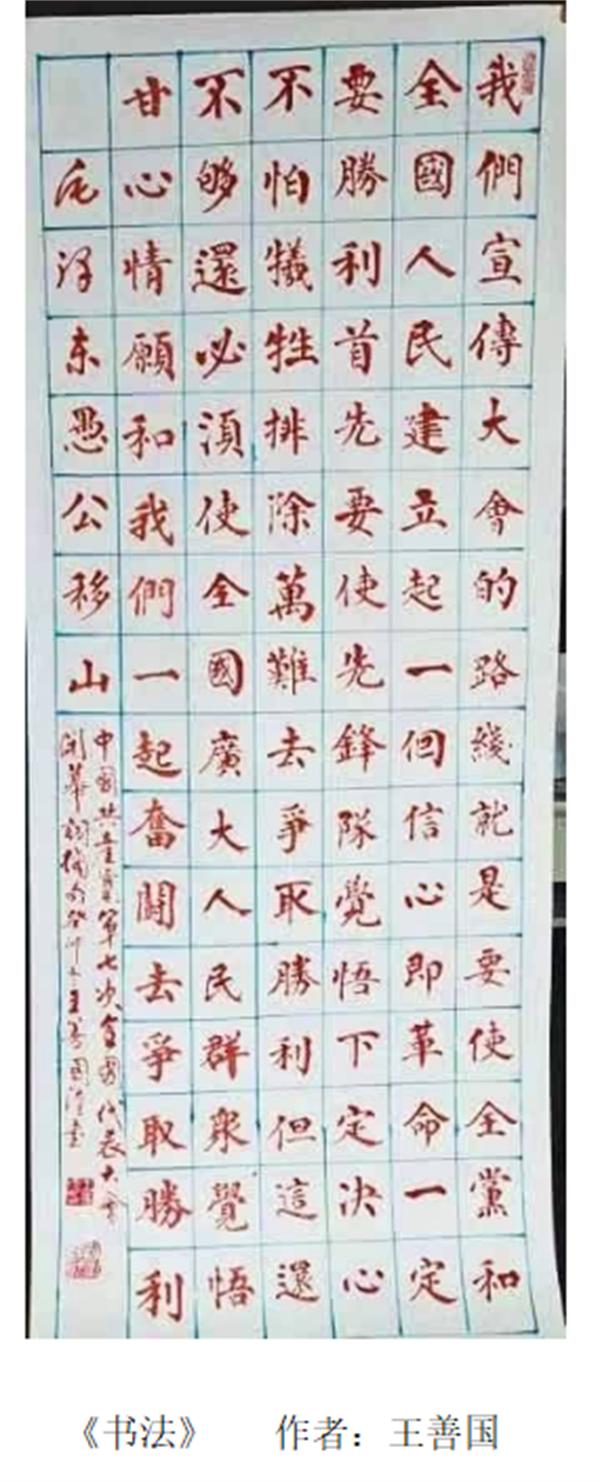 我們宣傳大會的路綫就是要使全黨和
全國人民建立起一個信心即革命一定
要勝利首先要使先鋒隊覺悟下定決心
不怕犧牲排除萬難去爭取勝利但這還
不够還必須使全國廣大人民群衆覺悟
甘心情願和我們一起奮鬪去爭取勝利
毛澤東愚公移山
中國共產黨第七次全國代表大會
閉幕詞摘癸卯王善國書
《书法》 作者：王善国